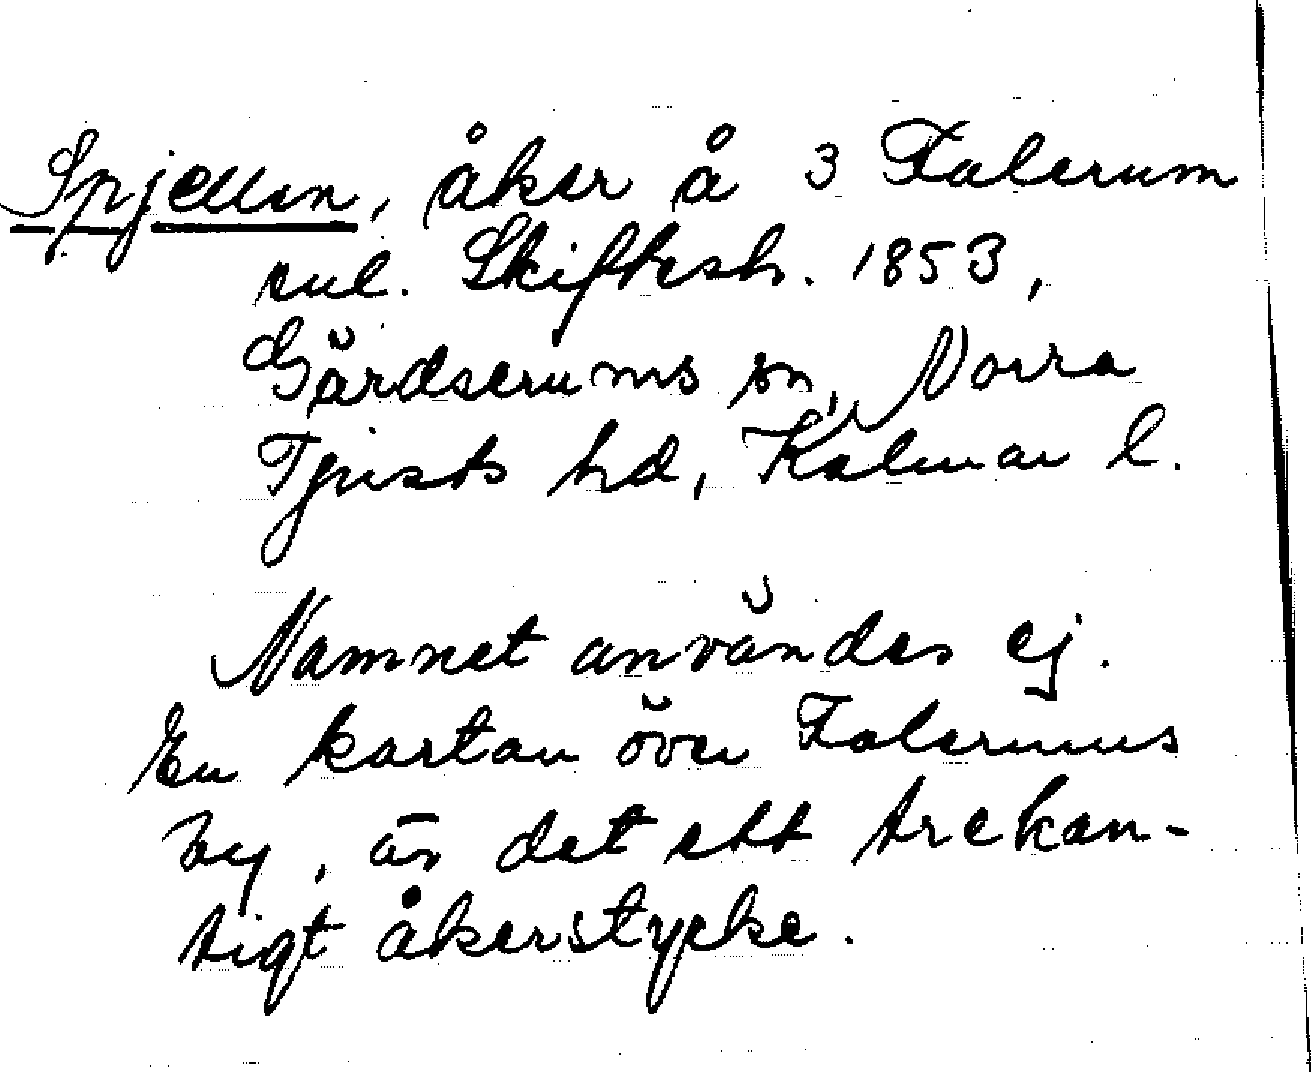 Spjellen, åker å 3 Falerum
enl. Skiftesh. 1853,
Gärdserums sn, Norra
Tjusts hd, Kalmar l.
Namnet användes ej.
En kartan över Falerums
by, är det ett trekan-
tigt åkerstycke.